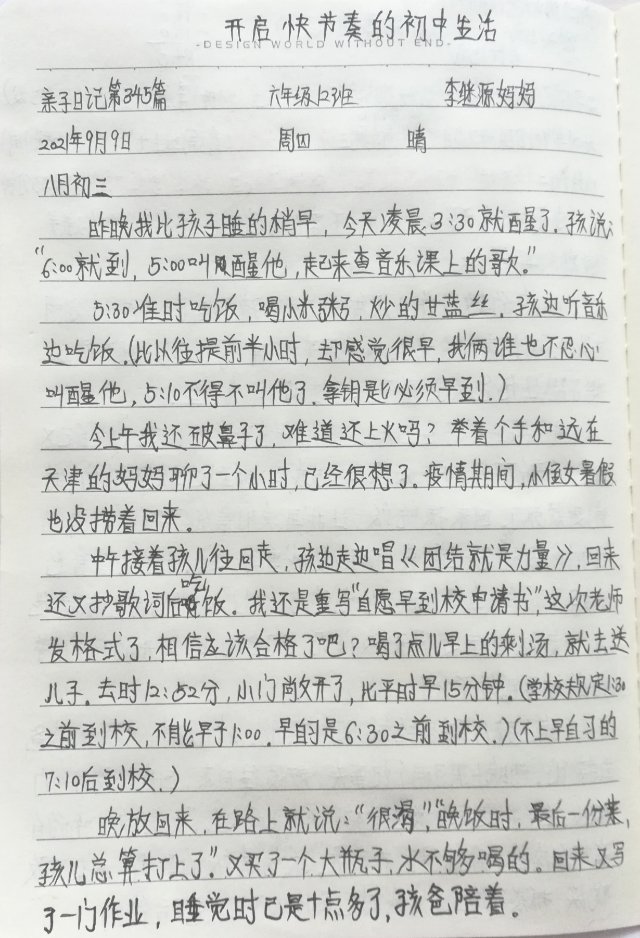 开启快节奏的初中生活
-DESIGN WORLD WITHOUT END-
亲子日记第345篇 六年级12班 李继源妈妈
2021年9月9日 周四 晴
八月初三
昨晚我比孩子睡的稍早，今天凌晨3:30就醒了。孩说：
“6:00就到，5:00叫醒他，起来查音乐课上的歌。”
5:30准时吃饭，喝小米粥，炒的甘蓝丝，孩边听音乐
边吃饭。（比以往提前半小时，却感觉很早，我俩谁也不忍心
叫醒他，5:10不得不叫他了。拿钥匙必须早到。）
今上午我还破鼻子了，难道还上火吗？举着个手和远在
天津的妈妈聊了一个小时，已经很想了。疫情期间，小侄女暑假
也没捞着回来。
中午接着孩儿往回走，孩边走边唱《团结就是力量》，回来
还又抄歌词后吃饭。我还是重写“自愿早到校申请书”，这次老师
发格式了，相信应该合格了吧？喝了点儿早上的剩汤，就去送
儿子。去时12:52分，小门敞开了，比平时早15分钟。（学校规定1:30
之前到校，不能早于1:00。早自习是6:30之前到校。）（不上早自习的
7:10后到校。）
晚放回来，在路上就说：“很渴”，“晚饭时，最后一份菜，
孩儿总算打上了”。又买了一个大瓶子，水不够喝的。回来又写
了一门作业，睡觉时已是十点多了，孩爸陪着。